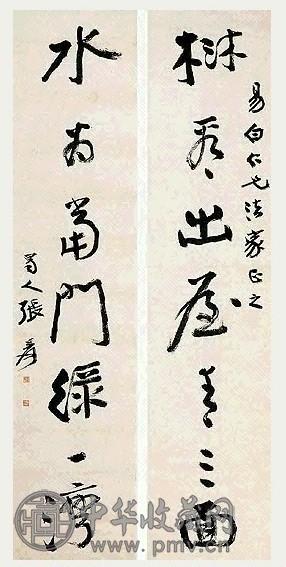 易白仁兄法家正之
樹出屋青三面
水當門綠一灣
蜀人張爰
中华收藏网
www.pmv.cn